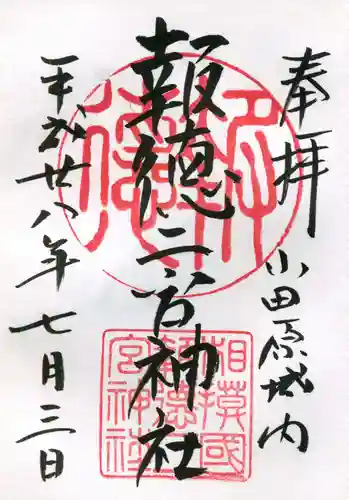 奉拝
小田原城内
報徳二宮神社
平成廿八年七月三日
相模國
報徳二
宮神社